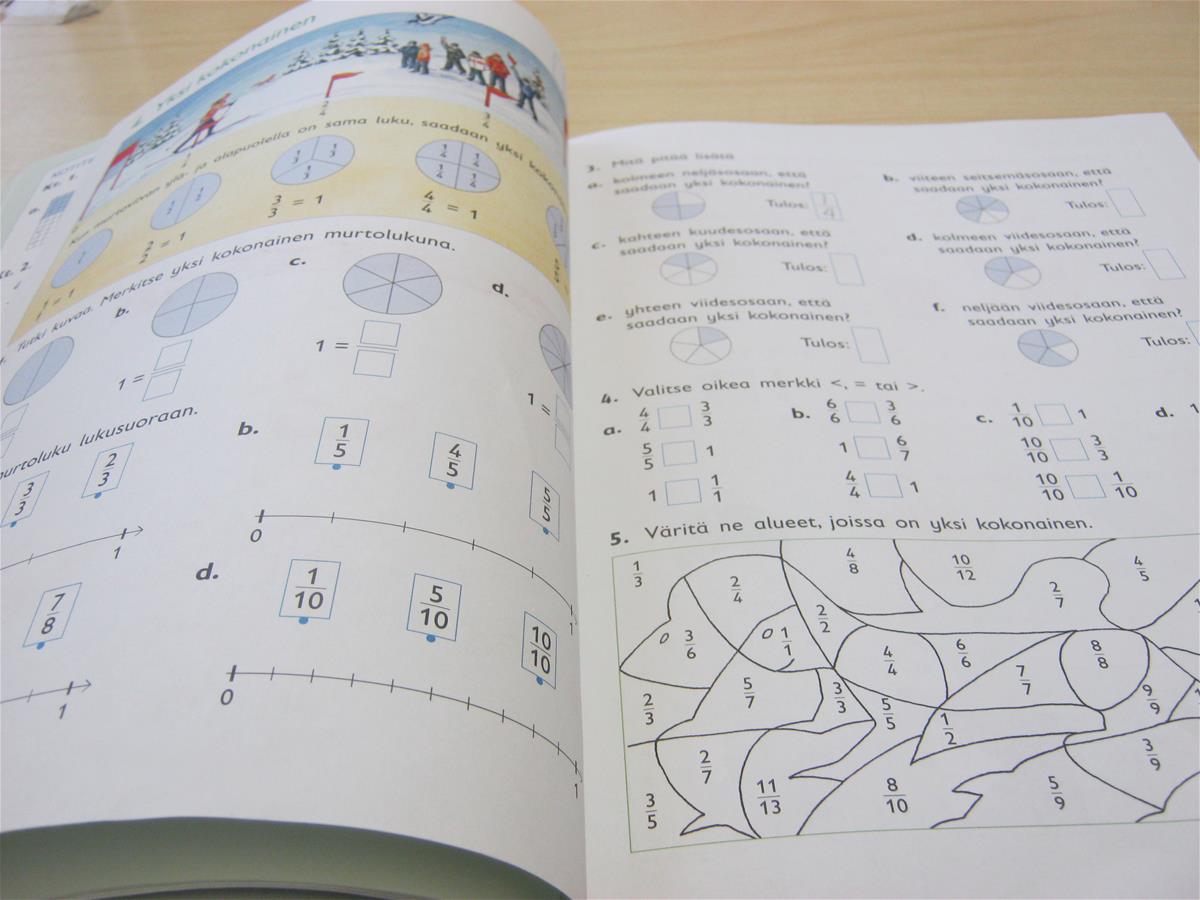 4. Yksi kokonainen
2/4
3/4
Kun murtoviivan ylä- ja alapuolella on sama luku, saadaan yksi
1/3 1/3 1/3
1/4 1/4 1/4 1/4
1 = 1
2/2 = 1
3/3 = 1
4/4 = 1
Tutki kuvaa. Merkitse yksi kokonainen murtolukuna.
b.
c.
d.
1 =
1 =
1 =
murtoluku lukusuoraan.
3/3
2/3
1
b.
1/5
4/5
5/5
0
1
7/8
1
d.
1/10
5/10
10/10
0
1
3. Mitä pitää lisätä
a. kolmeen neljäsosaan, että
saadaan yksi kokonainen?
Tulos: 1/4
b. viiteen seitsemäsosaan, että
saadaan yksi kokonainen?
Tulos:
c. kahteen kuudesosaan, että
saadaan yksi kokonainen?
Tulos:
d. kolmeen viidesosaan, että
saadaan yksi kokonainen?
Tulos:
e. yhteen viidesosaan, että
saadaan yksi kokonainen?
Tulos:
f. neljään viidesosaan, että
saadaan yksi kokonainen?
Tulos:
4. Valitse oikea merkki <, = tai >.
a. 4/4 3/3
5/5 1
1 1/1
b. 6/6 3/6
1 6/7
4/4 1
c. 1/10 1
10/10 3/3
10/10 1/10
d.
5. Väritä ne alueet, joissa on yksi kokonainen.
1/3 2/4 4/8 10/12 2/7 4/5
3/6 1/1 2/2 4/4 6/6 7/7 8/8
2/3 5/7 3/3 5/5 1/2 9/9
3/5 2/7 11/13 8/10 5/9 3/9